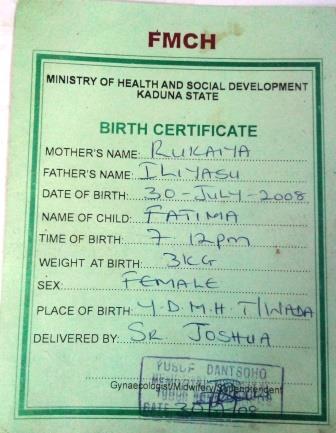 FMCH
MINISTRY OF HEALTH AND SOCIAL DEVELOPMENT
KADUNA STATE
BIRTH CERTIFICATE
MOTHER'S NAME: RUKAIYA
FATHER'S NAME: ILIYASU
DATE OF BIRTH: 30-JULY-2008
NAME OF CHILD: FATIMA
TIME OF BIRTH: 7 12pm
WEIGHT AT BIRTH: 3KG
SEX: FEMALE
PLACE OF BIRTH: Y.D.M.H. T/WADA
DELIVERED BY: SR JOSHUA
YUSUF DANTSOHO
Gynaecologist/Midwifery/Superintendent
DATE